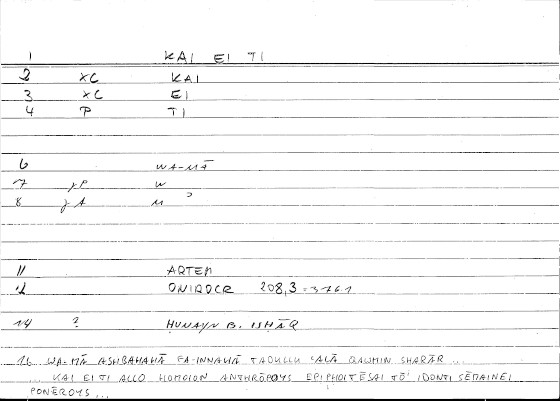 1 KAI EI TI
2 XC KAI
3 XC EI
4 P TI
6 WA-MĀ
7 jP W
8 jA M
11 ARTEM
12 ONIROCR 208,3 = 376.1
14 ? HUNAYN B. ISHĀQ
16 WA-MĀ ASHBAHAHĀ FA-INNAHĀ TADULLU ʿALĀ QAWMIN SHARĀR ...
... KAI EI TI ALLO HOMOION ANTHRŌPOYS EPIPHOITĒSAI TŌ' IDONTI SĒMAINEI
PONĒROYS ...